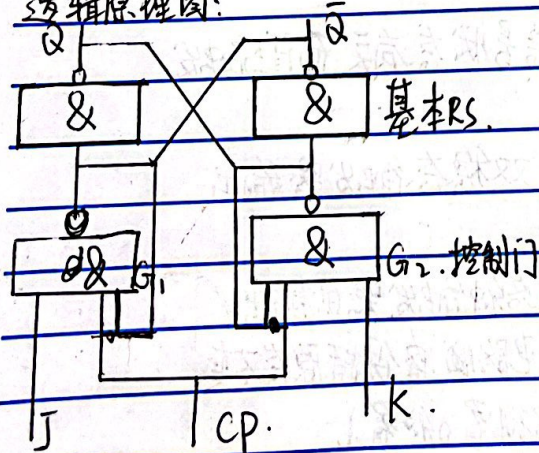 逻辑原理图:
Q Q̄
& & 基本RS.
& G₁ & G₂.控制门
J CP. K.